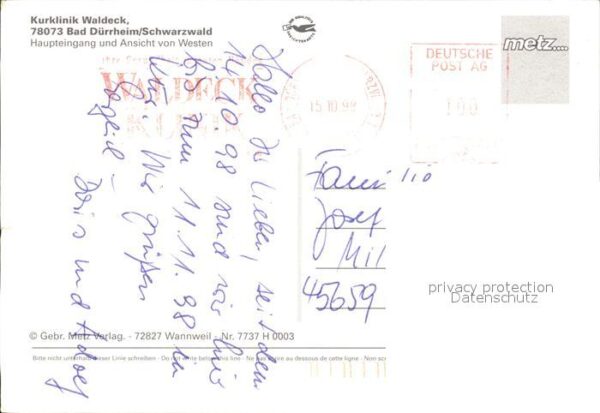 Kurklinik Waldeck,
78073 Bad Dürrheim/Schwarzwald
Haupteingang und Ansicht von Westen
metz....
DEUTSCHE
POST AG
100
15.10.98
WALDECK
KLINIK
Hallo Ihr Lieben, seit dem
14.10.98 sind wir hier
bis zum 11.11.98 in
Kur. Wir grüßen
Doris und Adolf
Familie
Josef
Mil
45659
privacy protection
Datenschutz
© Gebr. Metz Verlag. - 72827 Wannweil - Nr. 7737 H 0003
Bitte nicht unterhalb dieser Linie schreiben - Do not write below this line - Ne pas écrire au dessous de cette ligne - Non scr